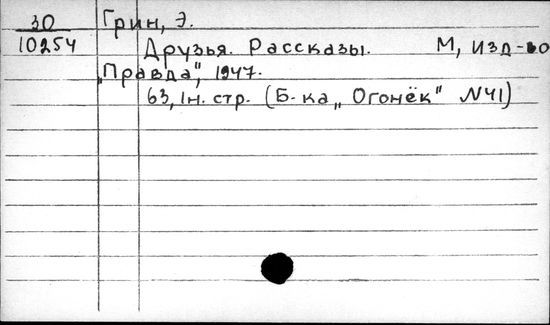 30 Грин, Э.
10254 Друзья. Рассказы. М, изд-во
„Правда", 1947.
63, 1н. стр. (Б-ка „Огонёк" №41)